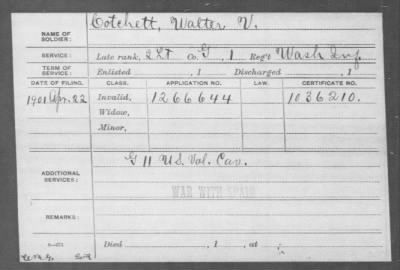 NAME OF SOLDIER: Cotchett, Walter V.
SERVICE: Late rank, 2 Lt Co. G, 1 Reg't Wash Inf.
TERM OF SERVICE: Enlisted , 1 Discharged , 1
DATE OF FILING. CLASS. APPLICATION NO. LAW. CERTIFICATE NO.
1901 Apr. 22 Invalid, 1266644 1036210.
Widow,
Minor,
ADDITIONAL SERVICES: G 11 U.S. Vol. Cav.
WAR WITH SPAIN
REMARKS:
Died , 1 , at